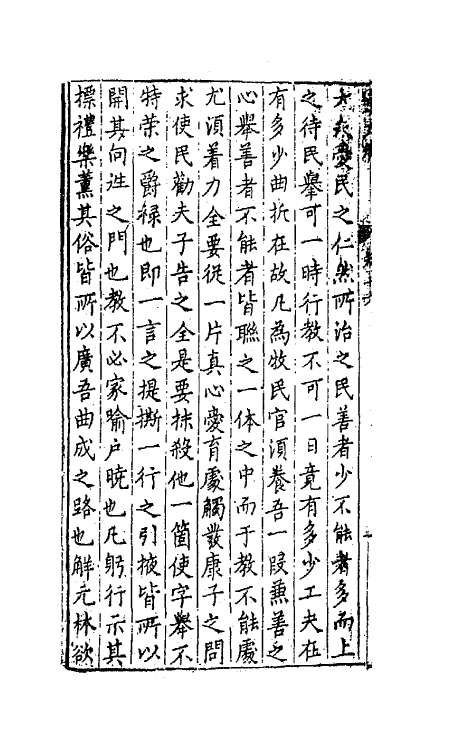 大夫愛民之仁然所治之民善者少不能者多而上
之待民舉可一時行教不可一日竟有多少工夫在
有多少曲折在故凡為牧民官須養吾一段兼善之
心舉善者不能者皆聯之一体之中而于教不能處
尤須着力全要從一片真心愛育處觸發康子之問
求使民勸夫子告之全是要抹殺他一箇使字舉不
特荣之爵祿也即一言之提撕一行之引掖皆所以
開其向迯之門也教不必家喻戶曉也凡躬行示其
標禮樂薰其俗皆所以廣吾曲成之路也解元林欲